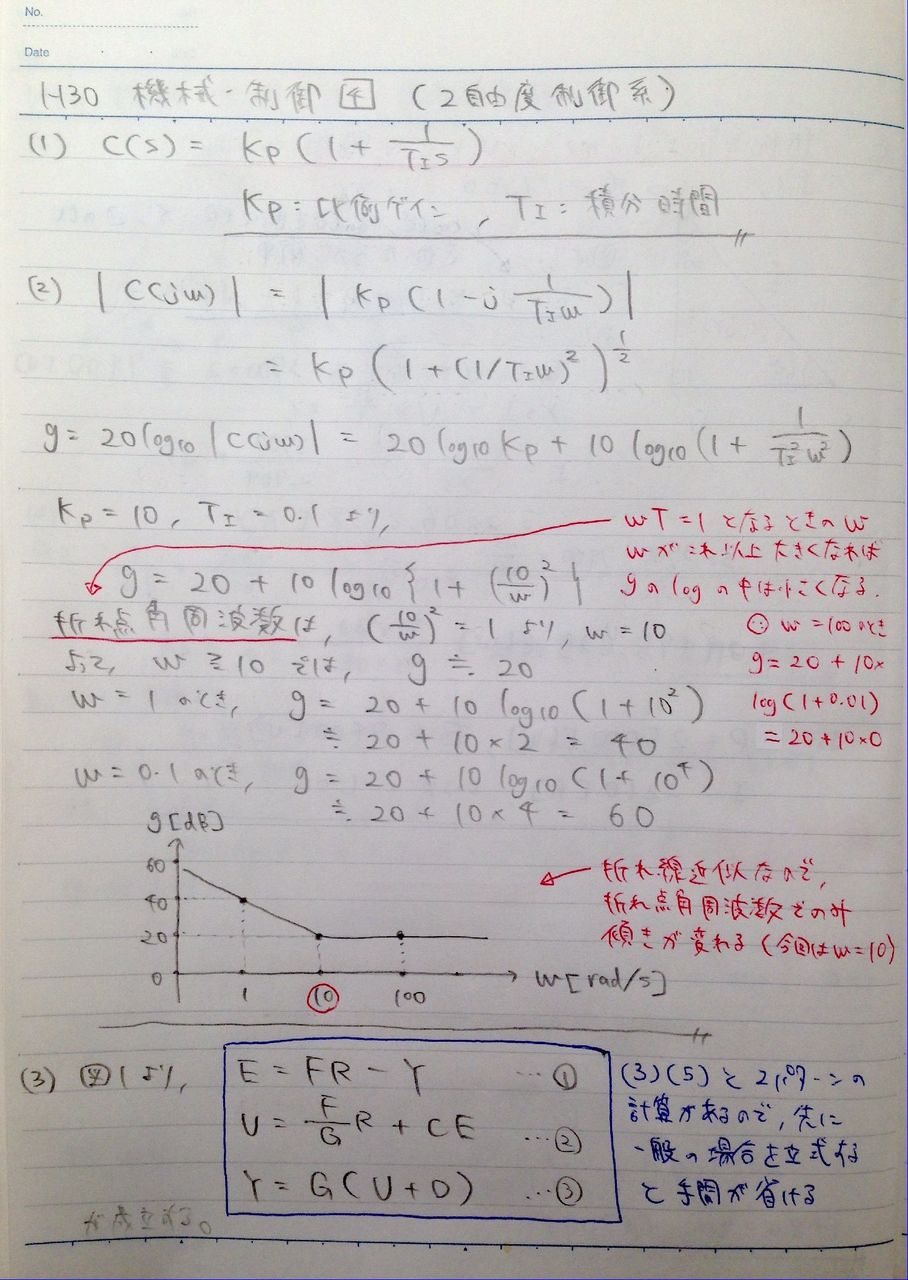 No.
Date
H30 機械・制御 四 (2自由度制御系)
(1) C(s) = Kp (1 + 1/(T_I s))
Kp : 比例ゲイン , T_I : 積分時間
(2) | C(jω) | = | Kp (1 - j 1/(T_I ω)) |
= Kp (1 + (1/T_I ω)^2)^(1/2)
g = 20 log10 |C(jω)| = 20 log10 Kp + 10 log10 (1 + 1/(T_I^2 ω^2))
Kp = 10 , T_I = 0.1 より,
g = 20 + 10 log10 { 1 + (10/ω)^2 }
折れ点角周波数は, (10/ω)^2 = 1 より, ω = 10
よって, ω ≧ 10 では, g ≒ 20
ω = 1 のとき, g = 20 + 10 log10 (1 + 10^2)
≒ 20 + 10 × 2 = 40
ω = 0.1 のとき, g = 20 + 10 log10 (1 + 10^4)
≒ 20 + 10 × 4 = 60
ωT = 1 となるときのω
ωがこれ以上大きくなれば
gのlogの中は小さくなる.
∵ ω = 100 のとき
g = 20 + 10×
log(1+0.01)
= 20 + 10×0
g [dB]
60
40
20
0
1
10
100
ω [rad/s]
折れ線近似なので,
折れ点角周波数でのみ
傾きが変わる (今回はω=10)
(3) 図1より,
E = FR - Y …①
U = F/G R + CE …②
Y = G(U+D) …③
が成立する。
(3)(5)と2パターンの
計算があるので, 先に
一般の場合を立式する
と手間が省ける